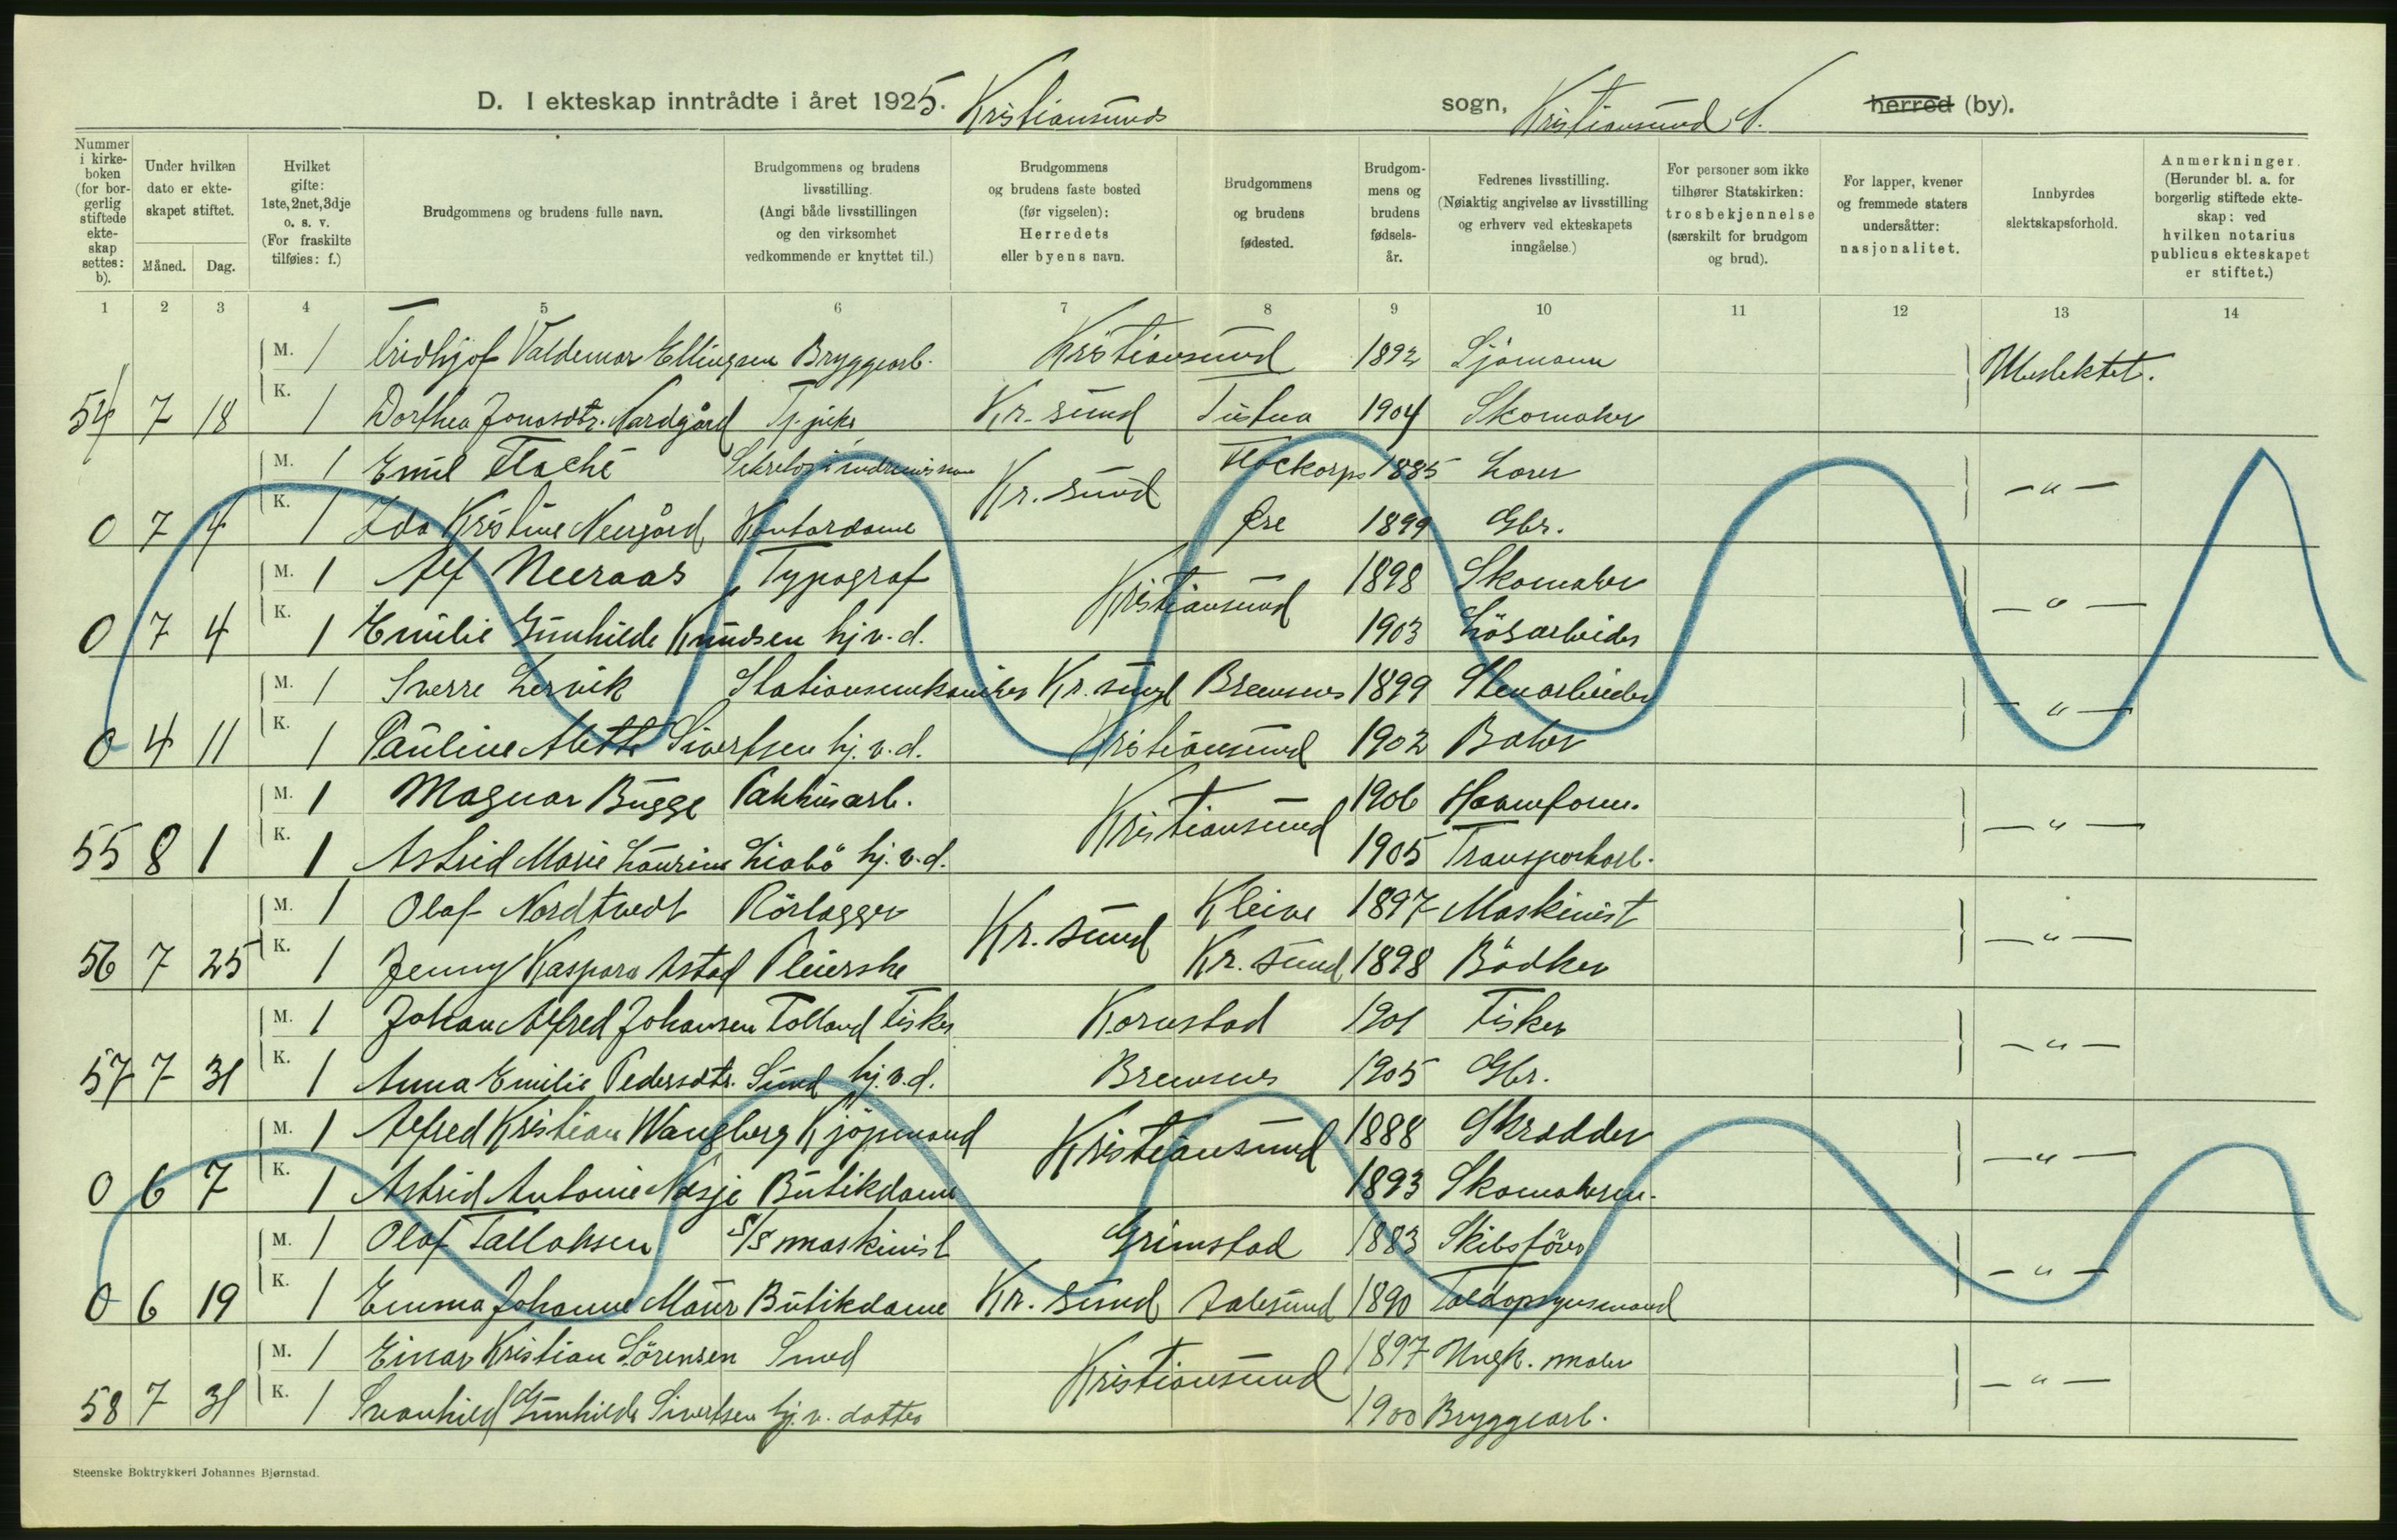 D. I ekteskap inntrådte i året 1925. Kristiansunds sogn, Kristiansund N. herred (by).
Nummer i kirkeboken (for borgerlig stiftede ekteskap settes: b).
Under hvilken dato er ekteskapet stiftet.
Måned. Dag.
Hvilket gifte: 1ste, 2net, 3dje o. s. v. (For fraskilte tilføies: f.)
Brudgommens og brudens fulle navn.
Brudgommens og brudens livsstilling. (Angi både livsstillingen og den virksomhet vedkommende er knyttet til.)
Brudgommens og brudens faste bosted (før vigselen): Herredets eller byens navn.
Brudgommens og brudens fødested.
Brudgommens og brudens fødselsår.
Fedrenes livsstilling. (Nøiaktig angivelse av livsstilling og erhverv ved ekteskapets inngåelse.)
For personer som ikke tilhører Statskirken: trosbekjennelse (særskilt for brudgom og brud).
For lapper, kvener og fremmede staters undersåtter: nasjonalitet.
Innbyrdes slektskapsforhold.
Anmerkninger. (Herunder bl. a. for borgerlig stiftede ekteskap: ved hvilken notarius publicus ekteskapet er stiftet.)
1 2 3 4 5 6 7 8 9 10 11 12 13 14
M. 1 Fridhjof Valdemar Ellingsen Bryggearb. Kristiansund 1892 Sjømann Ubeslektet.
54 7 18 K. 1 Dorthea Jonasdtr. Nardgård Tj. pike Kr. sund Tustna 1904 Skomaker
M. 1 Emil Flaché Kr. sund 1885 Lærer -"-
0 7 4 K. 1 Ida Kristine Neergård Kontordame Øre 1899 Gbr.
M. 1 Alf Neeraas Typograf Kristiansund 1898 Skomaker -"-
0 7 4 K. 1 Emilie Gunhilde Knudsen hj. v. d. 1903 Løsarbeider
M. 1 Sverre Lervik Stationsmekaniker Kr. sund Bremsnes 1899 Stenarbeider -"-
0 4 11 K. 1 Pauline Alette Sivertsen hj. v. d. Kristiansund 1902 Baker
M. 1 Magnar Bugge Pakhusarb. Kristiansund 1906 Havneform. -"-
55 8 1 K. 1 Astrid Marie Laurine Liabø hj. v. d. 1905 Transportarb.
M. 1 Olaf Nordtvedt Rørlegger Kr. sund Kleive 1897 Maskinist -"-
56 7 25 K. 1 Jenny Kaspara Astad Pleierske Kr. sund 1898 Bødker
M. 1 Johan Alfred Johansen Folland Fisker Kornstad 1901 Fisker -"-
57 7 31 K. 1 Anna Emilie Pedersdtr. Sund hj. v. d. Bremsnes 1905 Gbr.
M. 1 Alfred Kristian Wangberg Kjøpmand Kristiansund 1888 Skrædder -"-
0 6 7 K. 1 Astrid Antonie Næsje Butikdame 1893 Skomakerm.
M. 1 Olaf Tallaksen S/S maskinist Grimstad 1883 Skibsfører -"-
0 6 19 K. 1 Emma Johanne Maur Butikdame Kr. sund Aalesund 1890 Toldopsynsmand
M. 1 Einar Kristian Sørensen Smed Kristiansund 1897 Ungk. maker -"-
58 7 31 K. 1 Svanhild Gunhilde Sivertsen hj. v. datter 1900 Bryggearb.
Steenske Boktrykkeri Johannes Bjørnstad.